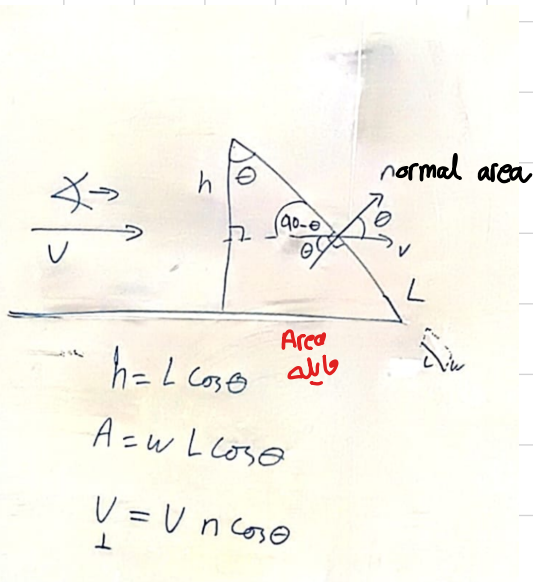 h
θ
normal area
90-θ
θ
θ
v
V
L
Area
مايله
L w
h = L cosθ
A = w L cosθ
V⊥ = V n cosθ